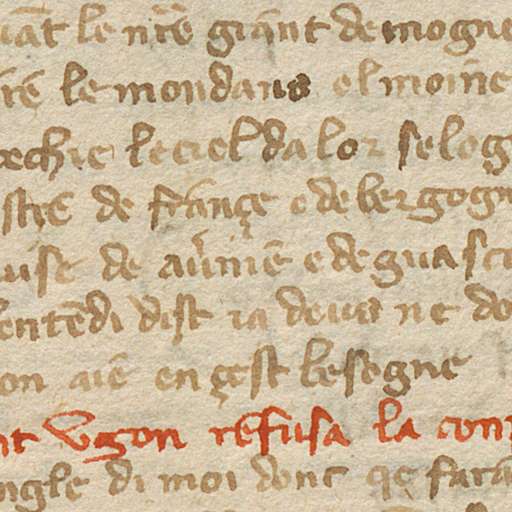 le nr̃e giãnt demogne
le mondans el moine
echie le ciel da lor se log
stre de frãnçe e de bergogn
use de auvinẽ e de guasco
entẽdi dist ia deus ne do
on aiẽ en çest besogne
nt vgon refusa la con
ngle di moi dont qe farã